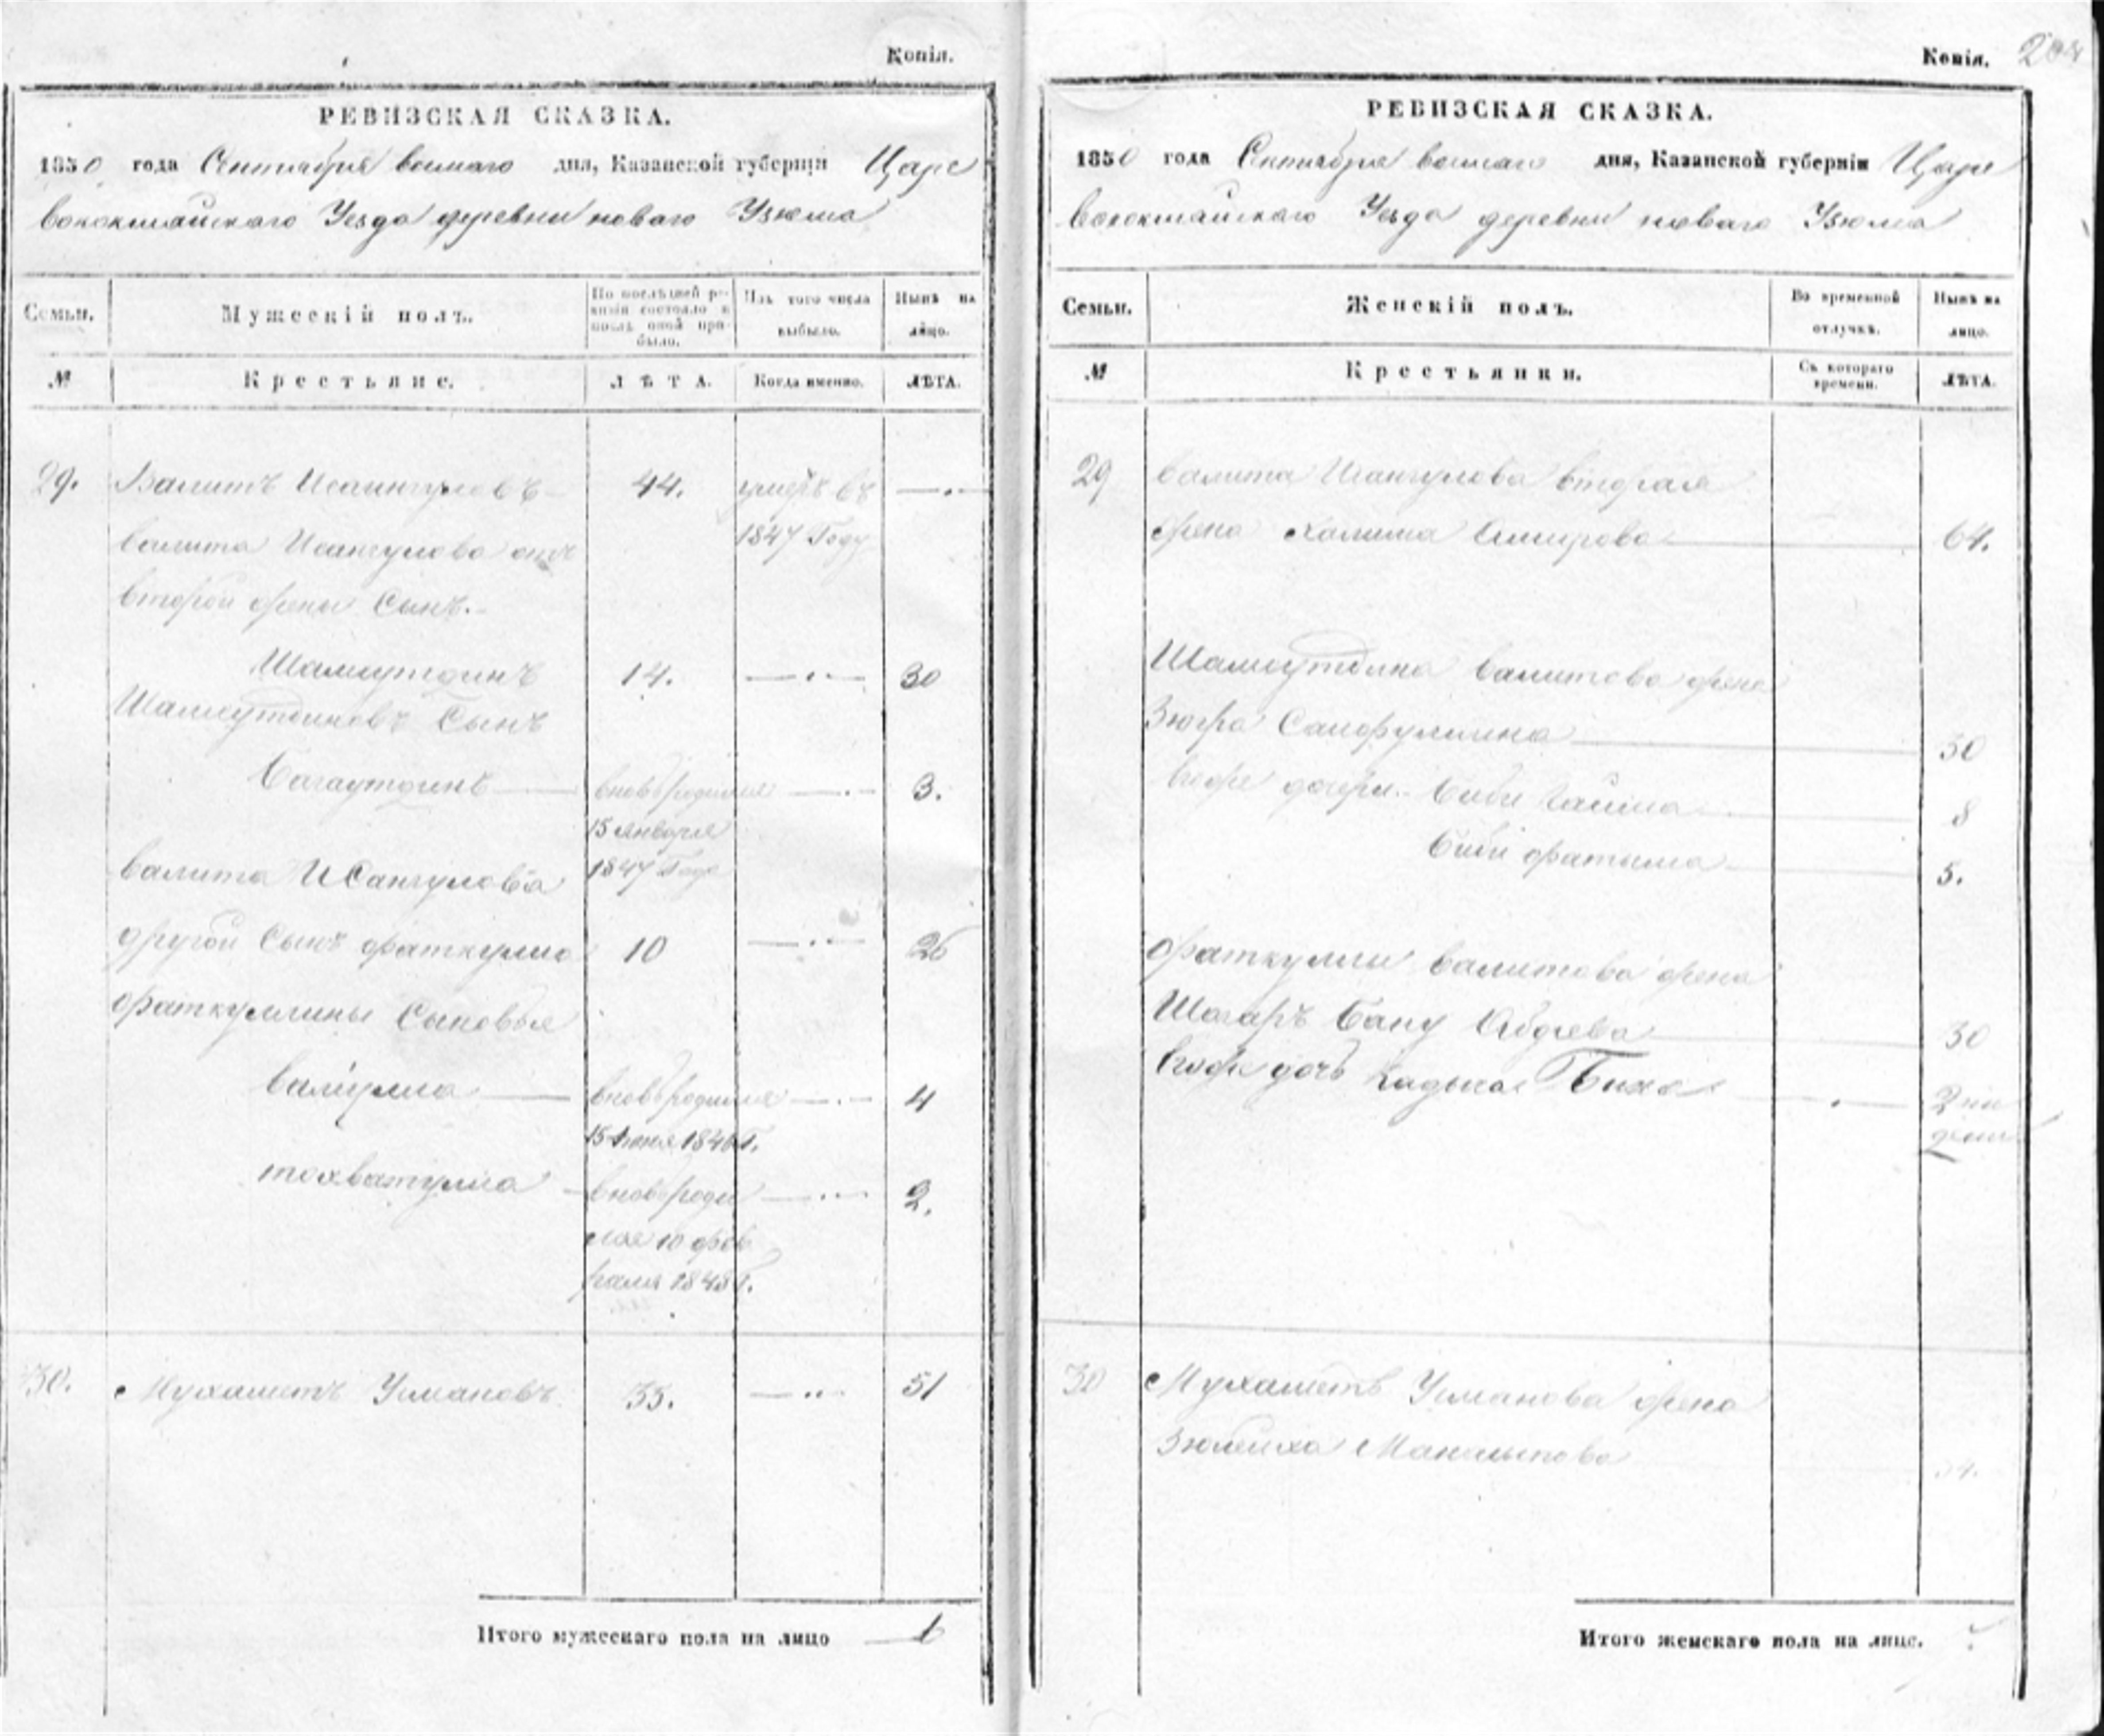 Копія.
РЕВИЗСКАЯ СКАЗКА.
1850 года Сентября восмаго дня, Казанской губерніи Царе
вококшайскаго Уезда деревни новаго Узюма
Семьи.
Мужескій полъ.
По послѣдней ре-
визіи состояло и
послѣ оной при-
было.
Изъ того числа
выбыло.
Нынѣ на
лицо.
№
Крестьяне.
ЛѢТА.
Когда именно.
ЛѢТА.
29. Валитъ Исангуловъ 44. умеръ въ
1847 Году
Валита Исангулова отъ
второй жены Сынъ.
Шамсутдинъ 14. 30
Шамсутдиновъ Сынъ
Багаутдинъ вновь родился 3.
15 января
1847 Года
Валита Исангулова
другой Сынъ фаткулла 10 26
фаткуллины Сыновья
валиулла вновь родился 4
15 Июня 1846 Г.
тохватулла вновь роди 2.
лся 10 фев
раля 1848 Г.
30. Мухаметъ Усмановъ 35. 51
Итого мужескаго пола на лицо
Копія. 204
РЕВИЗСКАЯ СКАЗКА.
1850 года Сентября восмаго дня, Казанской губерніи Царе
вококшайскаго Уезда деревни новаго Узюма
Семьи.
Женскій полъ.
Во временной
отлучкѣ.
Нынѣ на
лицо.
№
Крестьянки.
Съ котораго
времени.
ЛѢТА.
29 Валита Исангулова вторая
жена Халима Амирова 64.
Шамсутдина Валитова жена
Зюгра Сайфуллина 30
Ево же дочери. Биби 8
Биби фатыма 5.
фаткуллы Валитова жена
Шагаръ Бану Абдеева 30
Ево же дочь Бика 2
30 Мухаметъ Усманова жена
Зюлейха
Итого женскаго пола на лицо.